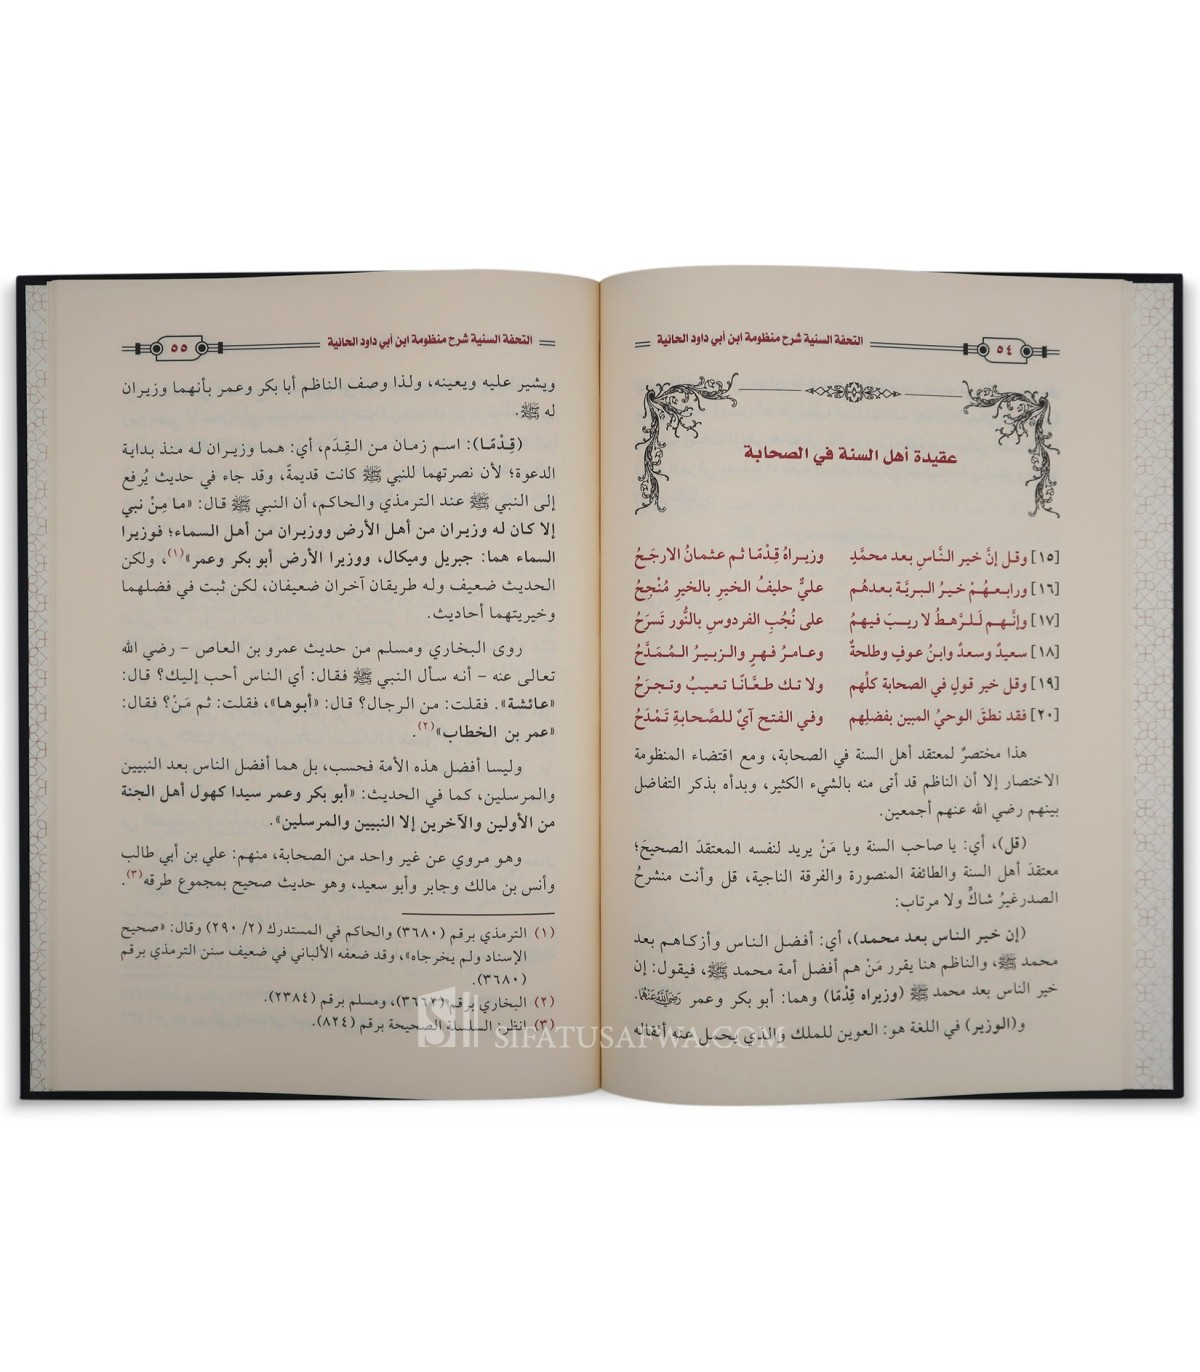 التحفة السنية شرح منظومة ابن أبي داود الحائية
٥٤
عقيدة أهل السنة في الصحابة
[١٥] وقل إنَّ خير النَّاسِ بعد محمَّدٍ وزيـراهُ قِدْمًا ثم عثمانُ الارجَـحُ
[١٦] ورابعـهُـمْ خيـرُ البـريَّـة بعدهُم عليٌّ حليفُ الخيرِ بالخيرِ مُنْجِحُ
[١٧] وإنَّـهـم لَـلـرَّهـطُ لا ريـبَ فيهمُ على نُجُبِ الفردوسِ بالنُّور تَسرَحُ
[١٨] سعيدٌ وسعدٌ وابنُ عوفٍ وطلحةٌ وعـامـرُ فـهـرٍ والـزبـيـرُ الـمُـمَـدَّحُ
[١٩] وقل خير قولٍ في الصحابة كلِّهم ولا تـك طعَّـانًا تـعـيـبُ وتـجـرَحُ
[٢٠] فقد نطقَ الوحيُ المبين بفضلِهم وفي الفتح آيٌ للصَّحابةِ تَـمْدَحُ
هذا مختصرٌ لمعتقد أهل السنة في الصحابة، ومع اقتضاء المنظومة
الاختصار إلا أن الناظم قد أتى منه بالشيء الكثير، وبدأه بذكر التفاضل
بينهم رضي الله عنهم أجمعين.
(قل)، أي: يا صاحب السنة ويا مَنْ يريد لنفسه المعتقدَ الصحيحَ؛
معتقدَ أهل السنة والطائفة المنصورة والفرقة الناجية، قل وأنت منشرحُ
الصدرغيرُ شاكٍّ ولا مرتاب:
(إن خير الناس بعد محمد)، أي: أفضل الناس وأزكاهم بعد
محمد ﷺ، والناظم هنا يقرر مَنْ هم أفضل أمة محمد ﷺ، فيقول: إن
خير الناس بعد محمد ﷺ (وزيراه قِدْمًا) وهما: أبو بكر وعمر رَضِيَ اللَّهُ عَنْهُمَا.
و(الوزير) في اللغة هو: العوين للملك والذي يحمل عنه أثقاله
التحفة السنية شرح منظومة ابن أبي داود الحائية
٥٥
ويشير عليه ويعينه، ولذا وصف الناظم أبا بكر وعمر بأنهما وزيران
له ﷺ.
(قِـدْمًا): اسم زمان من القِدَم، أي: هما وزيران له منذ بداية
الدعوة؛ لأن نصرتهما للنبي ﷺ كانت قديمةً، وقد جاء في حديث يُرفع
إلى النبي ﷺ عند الترمذي والحاكم، أن النبي ﷺ قال: «ما مِنْ نبي
إلا كان له وزيران من أهل الأرض ووزيران من أهل السماء؛ فوزيرا
السماء هما: جبريل وميكال، ووزيرا الأرض أبو بكر وعمر»(١)، ولكن
الحديث ضعيف وله طريقان آخران ضعيفان، لكن ثبت في فضلهما
وخيريتهما أحاديث.
روى البخاري ومسلم من حديث عمرو بن العاص – رضي الله
تعالى عنه – أنه سأل النبي ﷺ فقال: أي الناس أحب إليك؟ قال:
«عائشة». فقلت: من الرجال؟ قال: «أبوها»، فقلت: ثم مَنْ؟ فقال:
«عمر بن الخطاب»(٢).
وليسا أفضل هذه الأمة فحسب، بل هما أفضل الناس بعد النبيين
والمرسلين، كما في الحديث: «أبو بكر وعمر سيدا كهول أهل الجنة
من الأولين والآخرين إلا النبيين والمرسلين».
وهو مروي عن غير واحد من الصحابة، منهم: علي بن أبي طالب
وأنس بن مالك وجابر وأبو سعيد، وهو حديث صحيح بمجموع طرقه(٣).
(١) الترمذي برقم (٣٦٨٠) والحاكم في المستدرك (٢/ ٢٩٠) وقال: «صحيح
الإسناد ولم يخرجاه»، وقد ضعفه الألباني في ضعيف سنن الترمذي برقم
(٣٦٨٠).
(٢) البخاري برقم (٣٦٦٢)، ومسلم برقم (٢٣٨٤).
(٣) انظر: السلسلة الصحيحة برقم (٨٢٤).
SIFATUSAFWA.COM